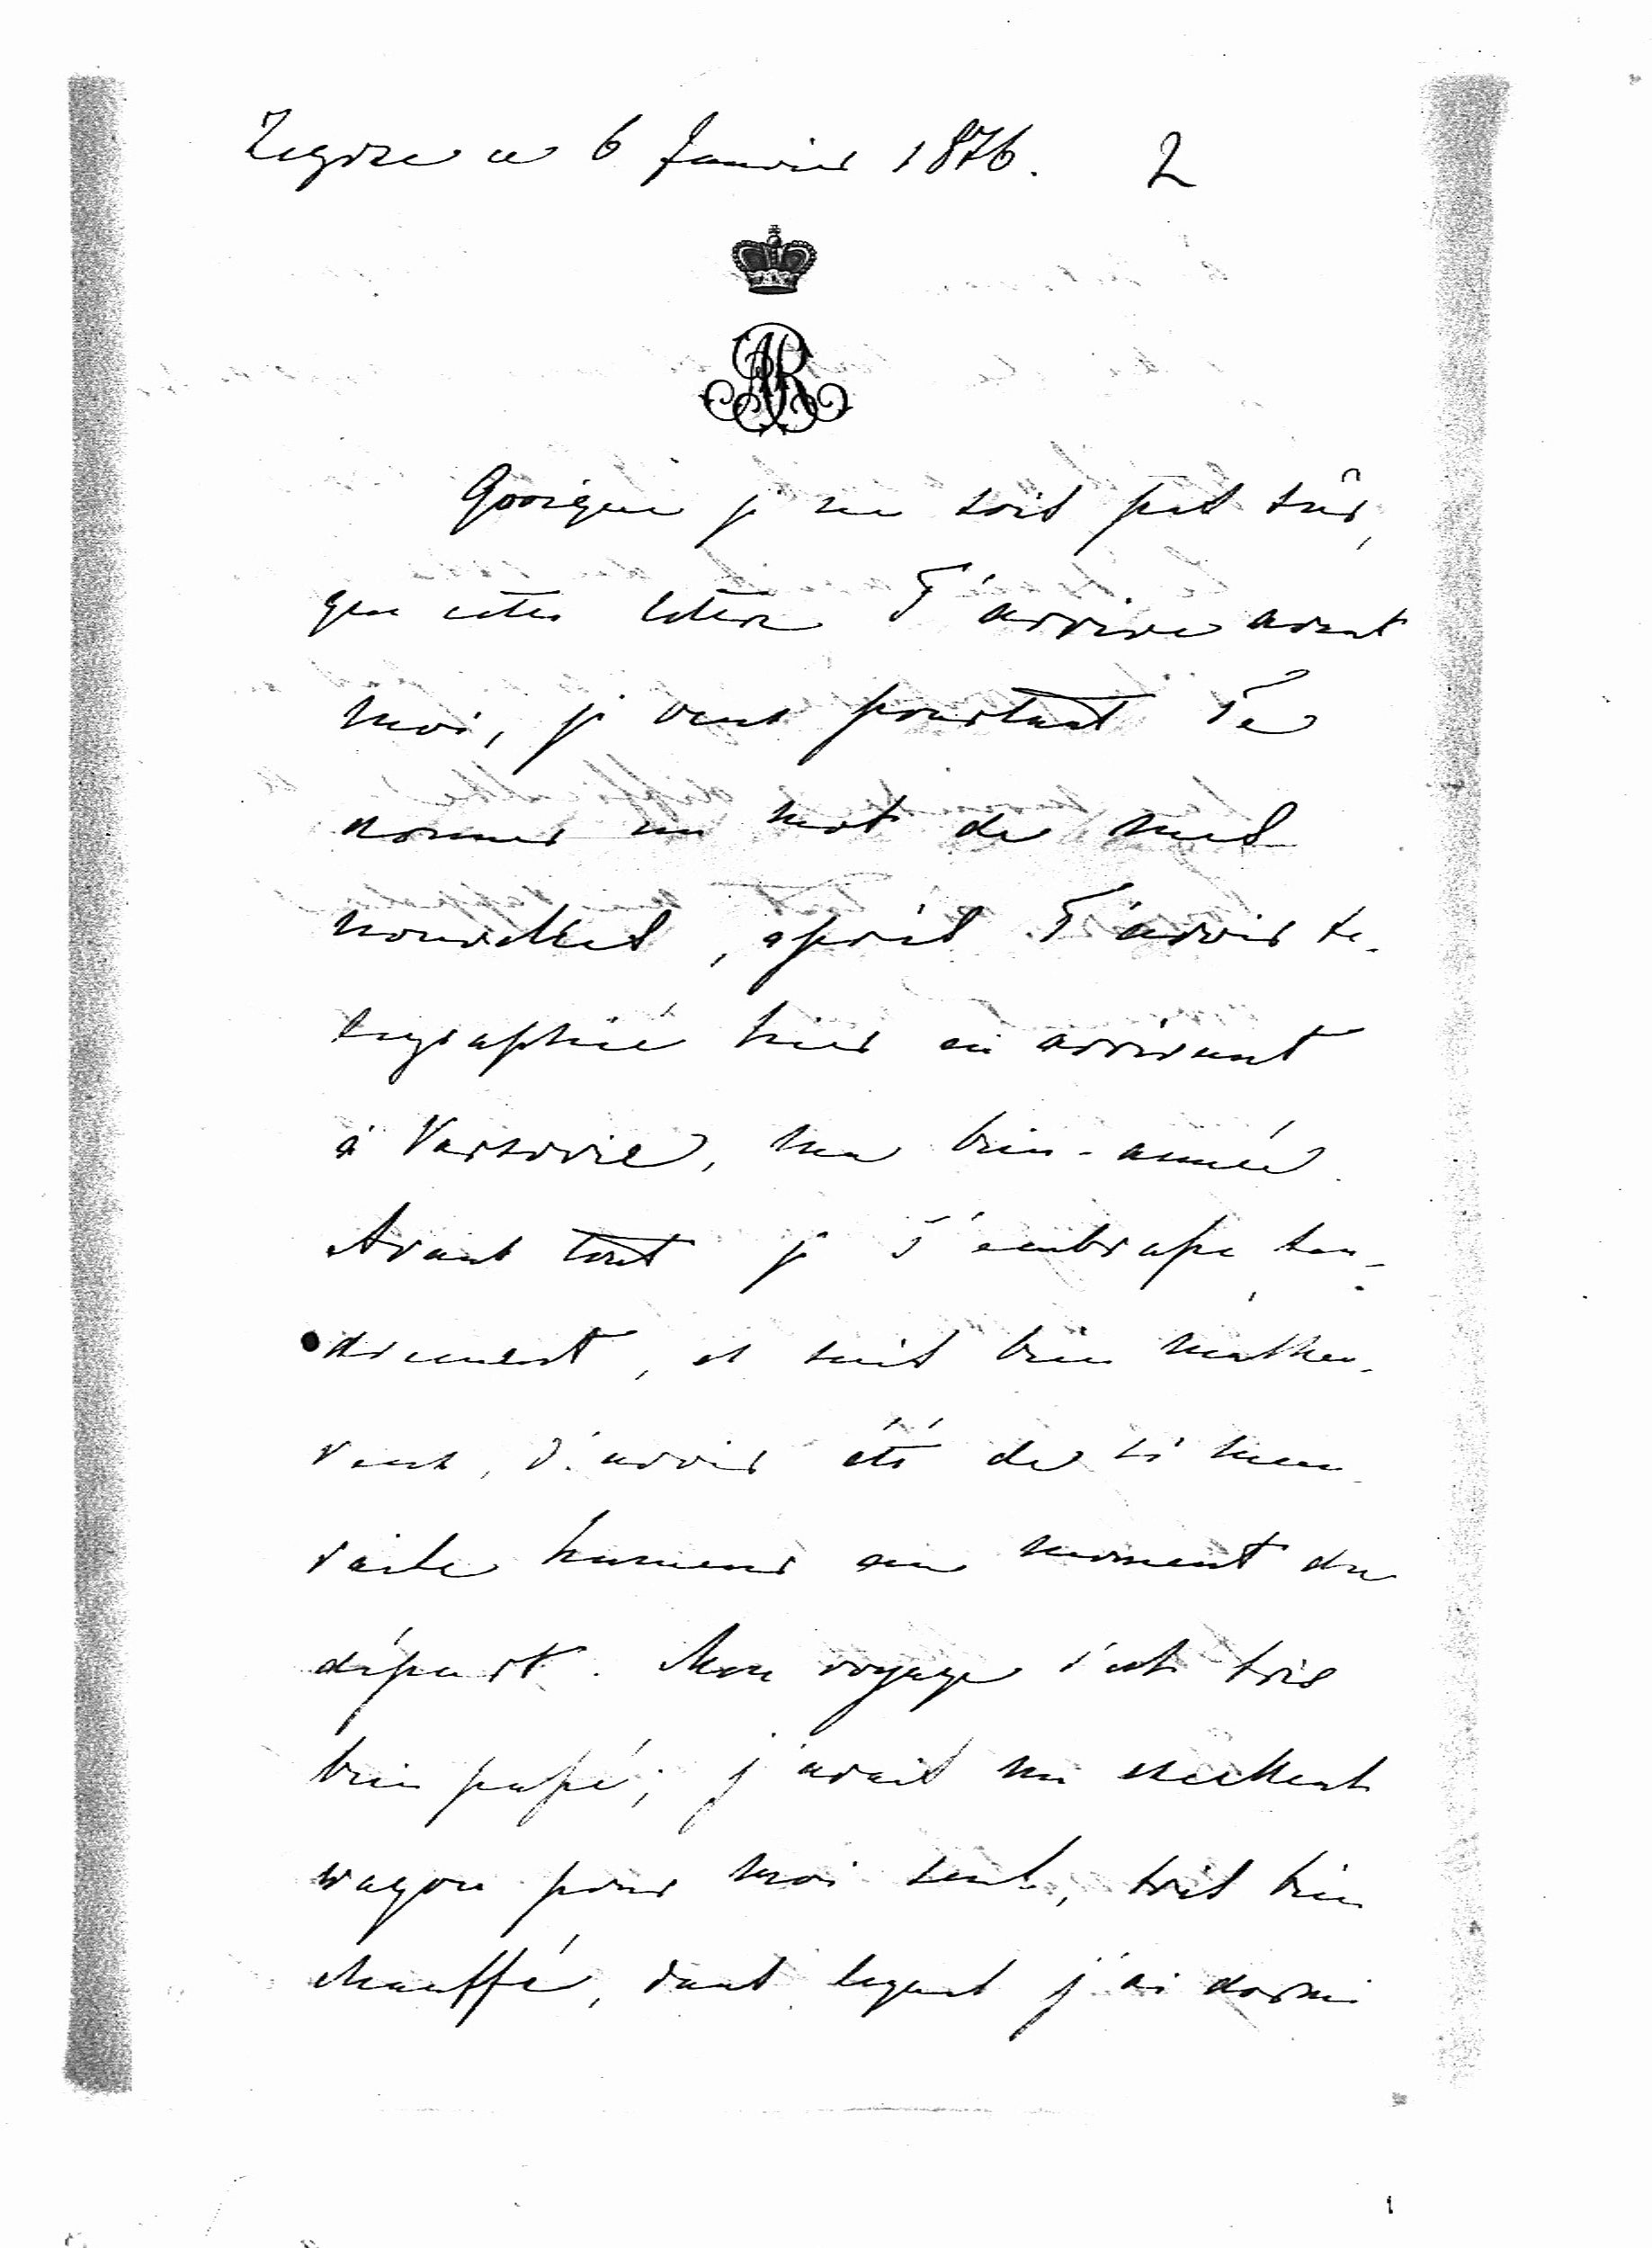 Zegrze ce 6 Janvier 1876. 2
AR
Quoique je ne sois pas sûr,
que cette lettre T'arrive avant
moi, je veux pourtant Te
donner un mot de mes
nouvelles, après T'avoir te-
legraphié hier en arrivant
à Varsovie, ma bien-aimée.
Avant tout je T'embrasse ten-
drement, et suis bien malheu-
reux, d'avoir été de si mau-
vaise humeur au moment du
départ. Mon voyage s'est très
bien passé; j'avais un excellent
wagon pour moi seul, très bien
chauffé, dans lequel j'ai dormi